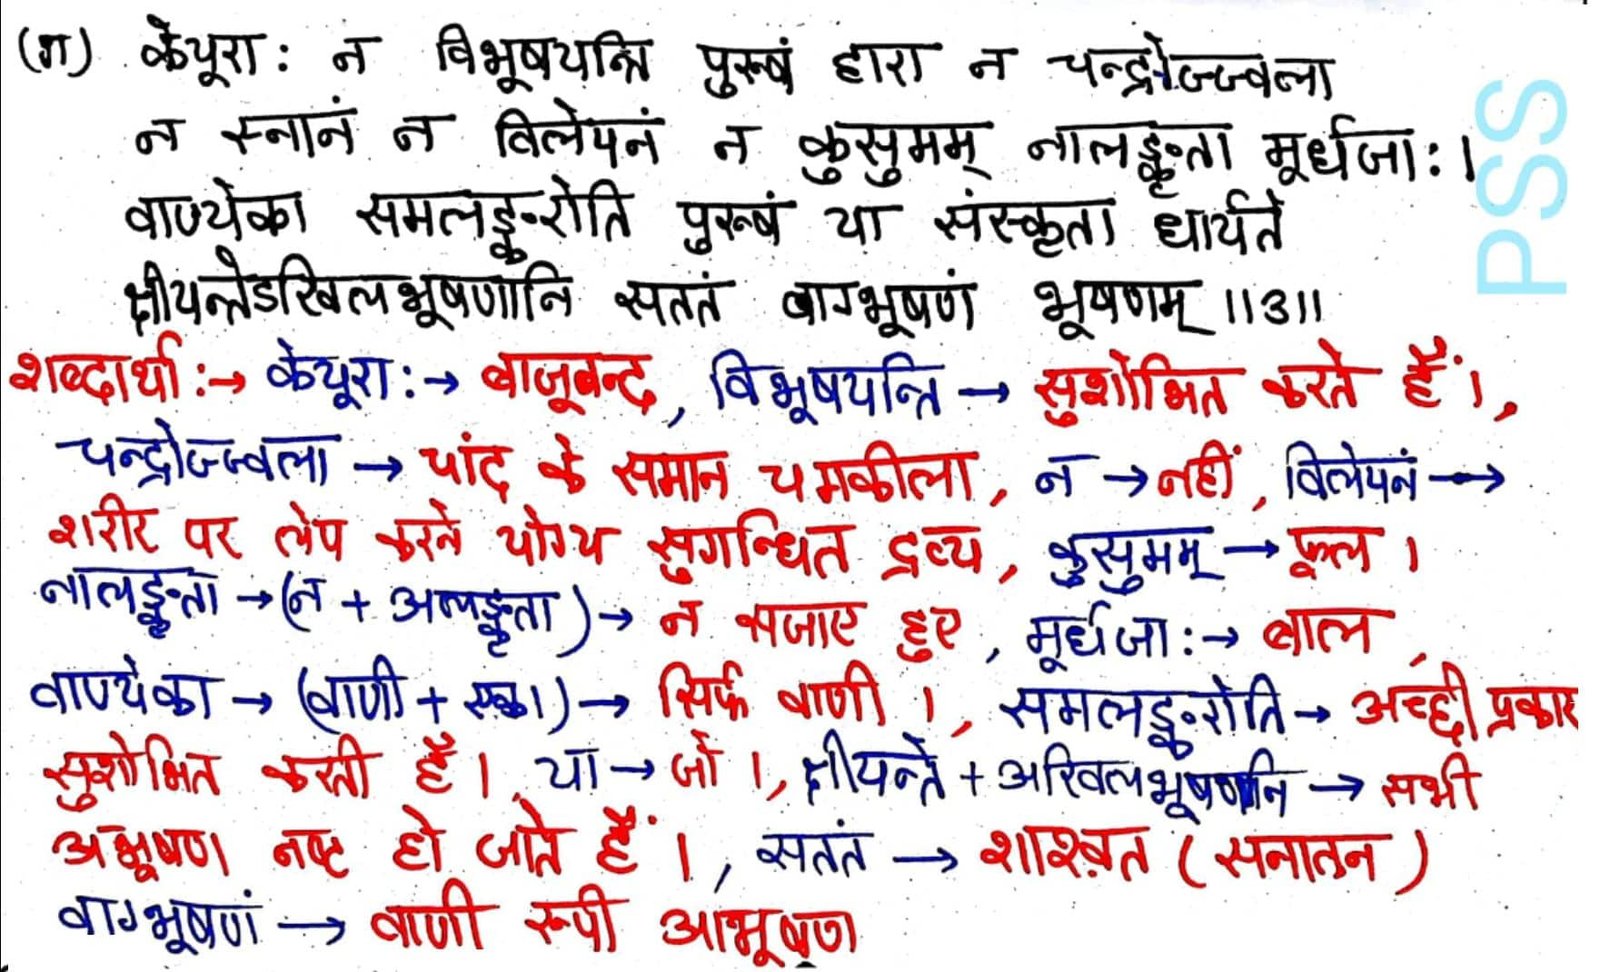 (ग) केयूरा: न विभूषयन्ति पुरुषं हारा न चन्द्रोज्ज्वला
न स्नानं न विलेपनं न कुसुमम् नालङ्कृता मूर्धजा: ।
वाण्येका समलङ्करोति पुरुषं या संस्कृता धार्यते
क्षीयन्तेऽखिलभूषणानि सततं वाग्भूषणं भूषणम् ॥3॥
शब्दार्था :→ केयूरा :→ बाजूबन्द, विभूषयन्ति → सुशोभित करते हैं।,
चन्द्रोज्ज्वला → चांद के समान चमकीला, न → नहीं, विलेपनं →
शरीर पर लेप करने योग्य सुगन्धित द्रव्य, कुसुमम् → फूल ।
नालङ्कृता → (न + अलङ्कृता) → न सजाए हुए, मूर्धजा :→ बाल,
वाण्येका → (वाणी + एका) → सिर्फ वाणी ।, समलङ्करोति → अच्छी प्रकार
सुशोभित करती है । या → जो ।, क्षीयन्ते + अखिलभूषणानि → सभी
आभूषण नष्ट हो जाते हैं ।, सततं → शाश्वत (सनातन)
वाग्भूषणं → वाणी रूपी आभूषण
PSS